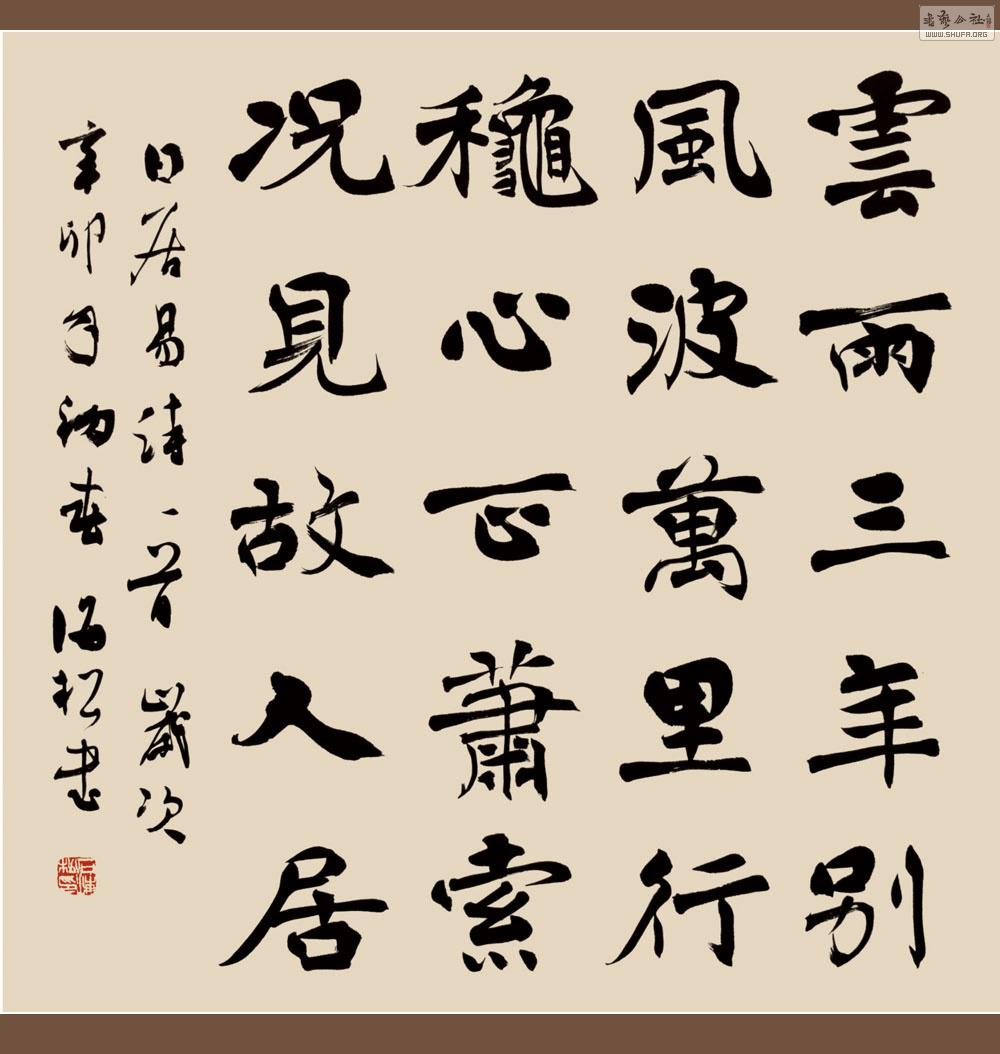 雲雨三年别
風波萬里行
龝心正蕭索
况見故人居
白居易诗一首歲次
辛卯年初春海松書
书艺公社
WWW.SHUFA.ORG